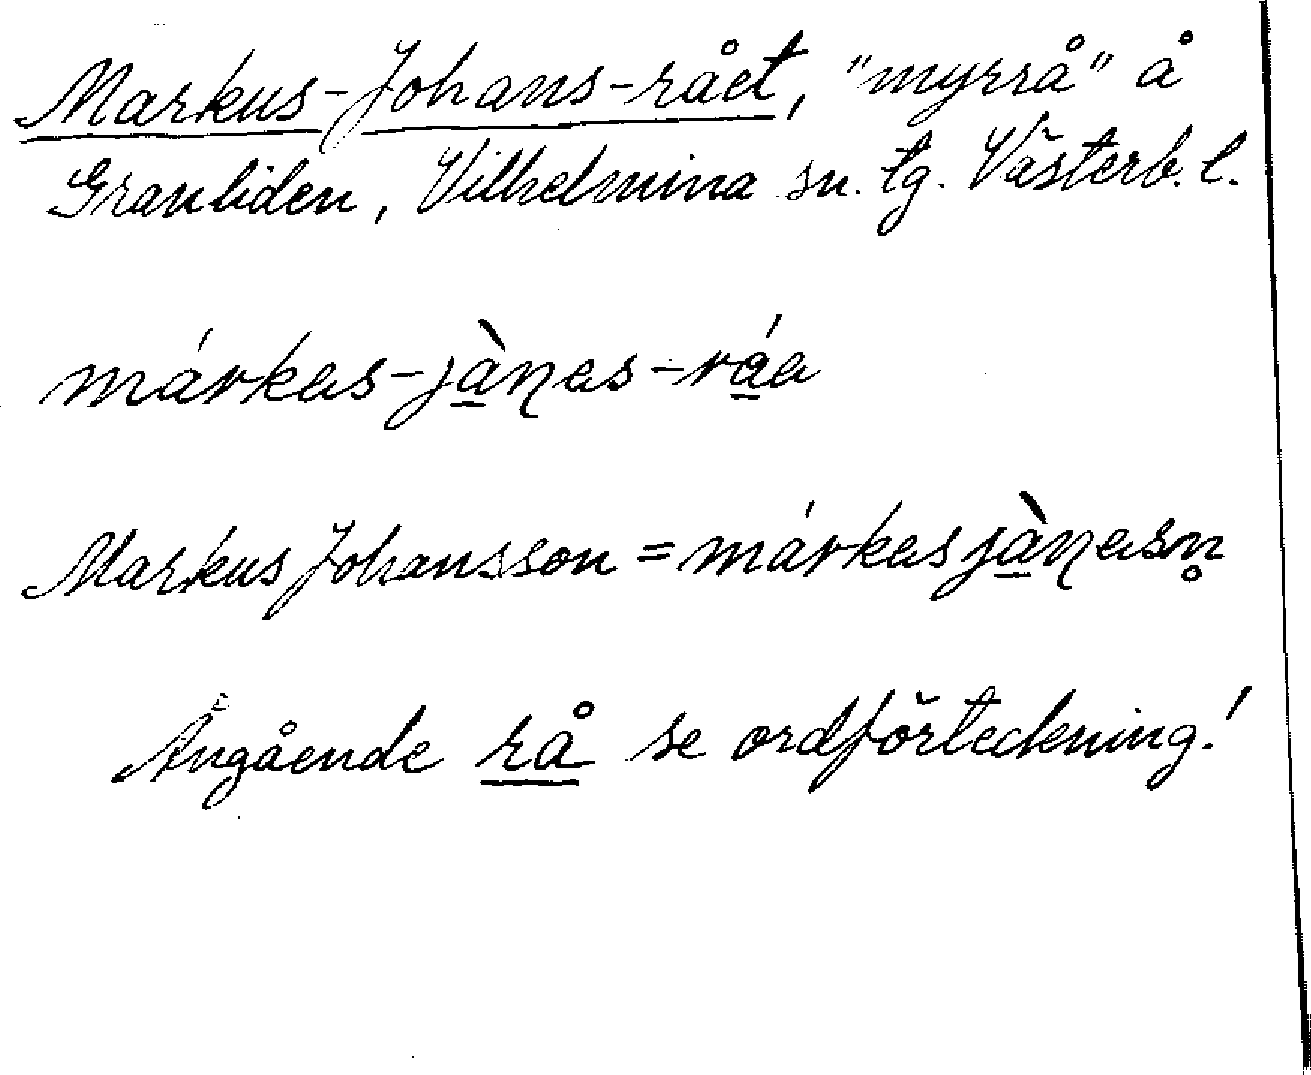 Markus-Johans-rået, "myrrå" å
Granliden, Vilhelmina sn. tg. Västerb. l.
márkas-jà̱ŋas-rá̱a
Markus Johansson = márkasjà̱ŋasn̥
Angående rå se ordförteckning!